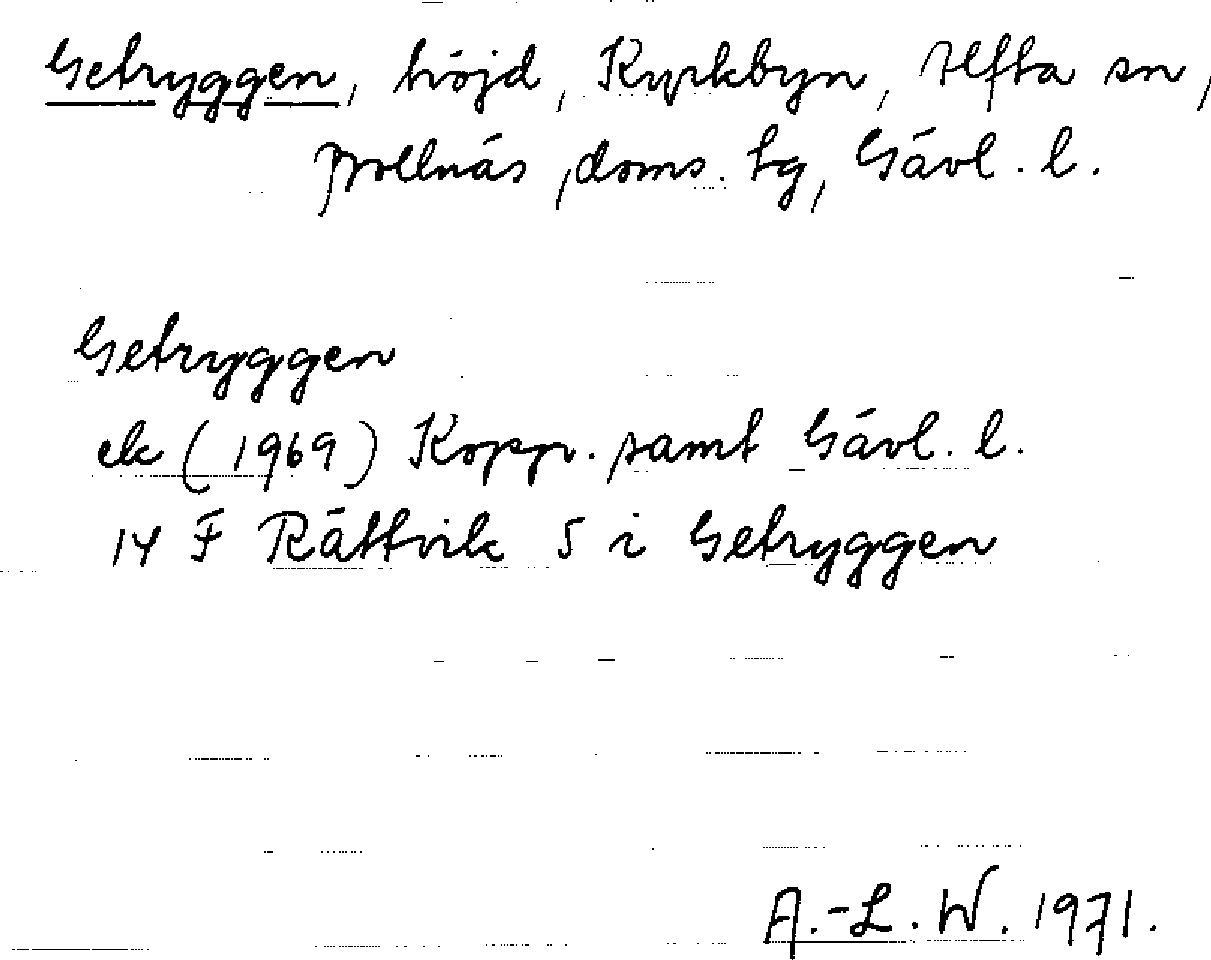 Getryggen, höjd, Kyrkbyn, Alfta sn,
Bollnäs doms. tg, Gävl. l.
Getryggen
ek (1969) Kopp. samt Gävl. l.
14 F Rättvik 5 i Getryggen
A.-L. W. 1971.